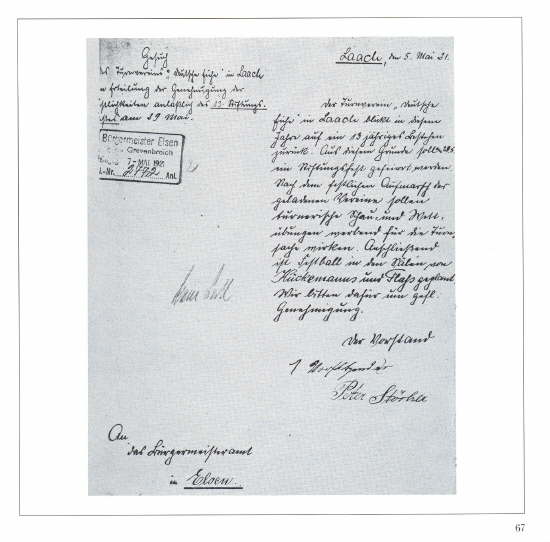 Gesuch
des Turnvereins „deutsche Eiche" in Laach
Erteilung der Genehmigung der
Festlichkeiten anläßlich des 13. Stiftungs-
festes am 29 Mai.
Bürgermeister Elsen
Grevenbroich
7-MAI.1921
J.-Nr. 2472 Anl.
Laach, den 5. Mai 21.
Der Turnverein „deutsche
Eiche" in Laach blickt in diesem
Jahre auf ein 13 jähriges Bestehen
zurück. Aus diesem Grunde soll
ein Stiftungsfest gefeiert werden.
Nach dem festlichen Aufmarsch der
geladenen Vereine sollen
turnerische Schau- und Wett-
übungen werbend für die Turn-
sache wirken. Anschließend
ist Festball in den Sälen von
Kückemanns und Flaßs geplant
Wir bitten dafür um gefl.
Genehmigung.
Der Vorstand
1 Vorsitzender
Peter
An
das Bürgermeisteramt
in Elsen.
67